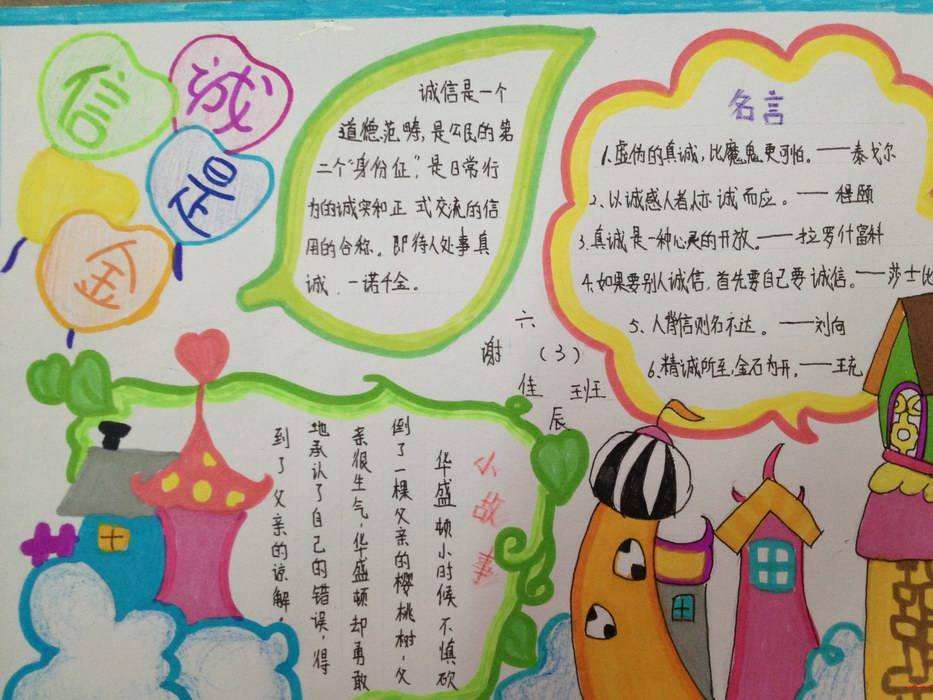 诚信是金
诚信是一个
道德范畴,是公民的第
二个"身份证",是日常行
为的诚实和正式交流的信
用的合称。即待人处事真
诚、一诺千金。
名言
1.虚伪的真诚,比魔鬼更可怕。——泰戈尔
2、以诚感人者人亦诚而应。——程颐
3.真诚是一种心灵的开放。——拉罗什富科
4.如果要别人诚信,首先要自己要诚信。——莎士比
5、人背信则名不达。——刘向
6、精诚所至,金石为开。——王充
六(3)班
谢佳辰
小故事
华盛顿小时候不慎砍
倒了一棵父亲的樱桃树,父
亲很生气,华盛顿却勇敢
地承认了自己的错误,得
到了父亲的谅解。